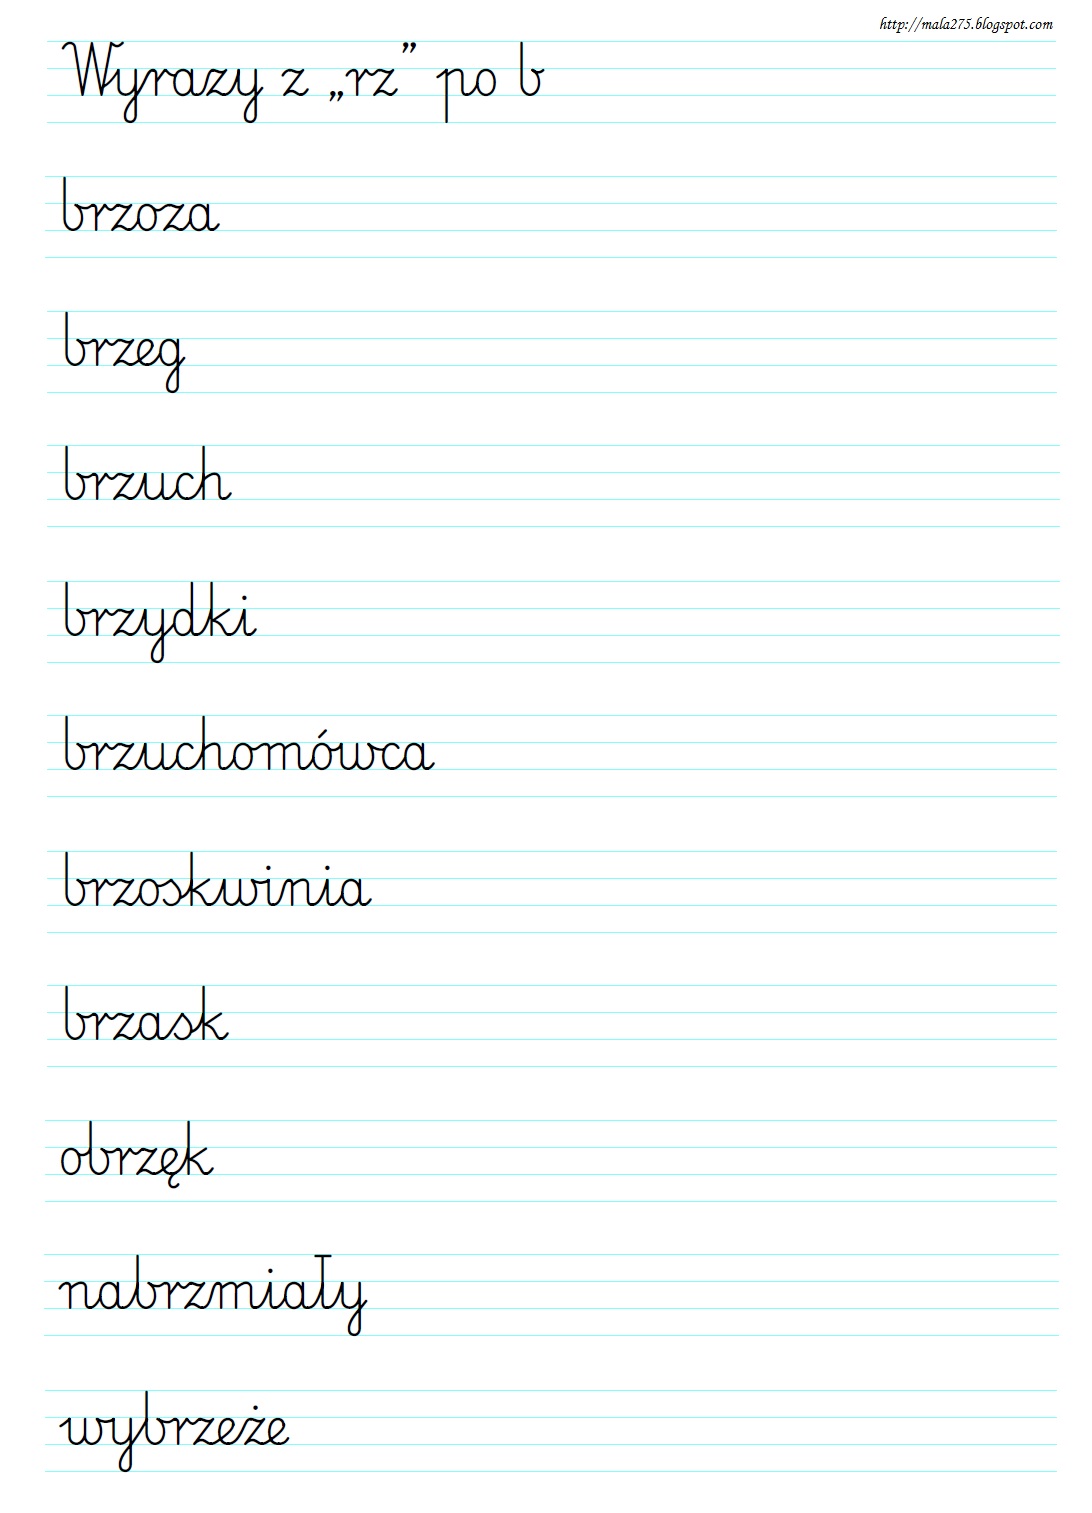 http://mala275.blogspot.com
Wyrazy z „rz” po b
brzoza
brzeg
brzuch
brzydki
brzuchomówca
brzoskwinia
brzask
obrzęk
nabrzmiały
wybrzeże